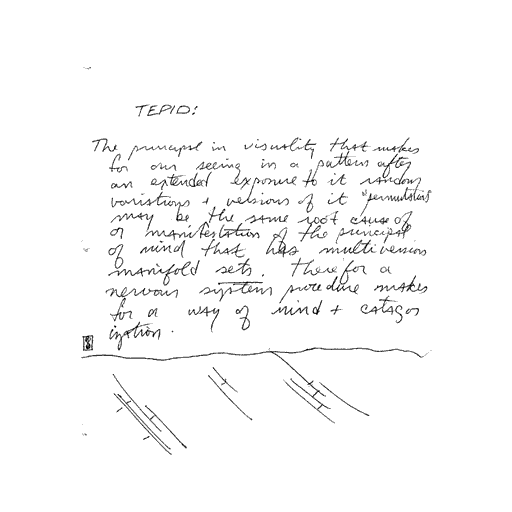 TEPID:
The principal in visuality that makes
for our seeing in a pattern after
an extended exposure to it random
variations + versions of it "permutations"
may be the same root cause of
or manifestation of the principal
of mind that has multiversion
manifold sets. Therefor a
nervous system procedure makes
for a way of mind + catagor
ization.